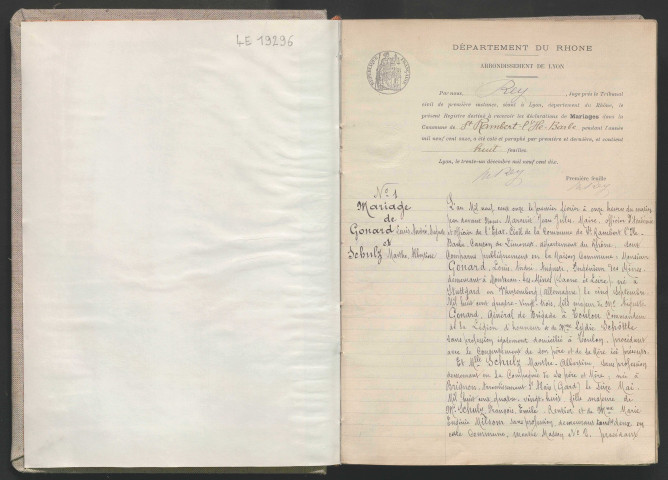 4E 19296
DÉPARTEMENT DU RHONE
ARRONDISSEMENT DE LYON
Par nous, Rey, Juge près le Tribunal
civil de première instance, séant à Lyon, département du Rhône, le
présent Registre destiné à recevoir les déclarations de Mariages dans la
Commune de St Rambert l'Ile-Barbe pendant l'année
mil neuf cent onze, a été coté et paraphé par première et dernière, et contient
huit feuilles.
Lyon, le trente-un décembre mil neuf cent dix.
Première feuille
No 1
Mariage
de
Gonard Louis, André, Auguste
et
Schulz Marthe, Albertine
L'an Mil neuf cent onze le premier février à onze heures du matin
par devant Nous Marmié Jean Jules, Maire, officier
officier de l'Etat-Civil de la Commune de St Rambert l'Ile-
Barbe Canton de Limonest, département du Rhône, sont
comparus publiquement en la Maison Commune, Monsieur
Gonard, Louis, André, Auguste, Ingénieur des Mines,
demeurant à Montceau-les-Mines (Saône et Loire), né à
Stuttgard en Wurtemberg (Allemagne) le vingt Septembre
Mil huit cent quatre-vingt-trois, fils majeur de Mr Auguste
Gonard, Général de Brigade à Toulon Commandeur
de la Légion d'honneur et de Mme Lydie
sans profession également domiciliés à Toulon, procédant
avec le Consentement de son père et de sa Mère ici présents.
Et Mlle Schulz Marthe-Albertine, sans profession
demeurant en la Compagnie de ses père et Mère, née à
Brignon, Arrondissement d'Alais (Gard) le Seize Mai
Mil huit cent quatre-vingt-huit, fille majeure de
Mr Schulz, François, Emile, Rentier et de Mme Marie
Eugénie Milsom sans profession demeurant tous deux en
cette Commune, montée Masson No 2, procédant